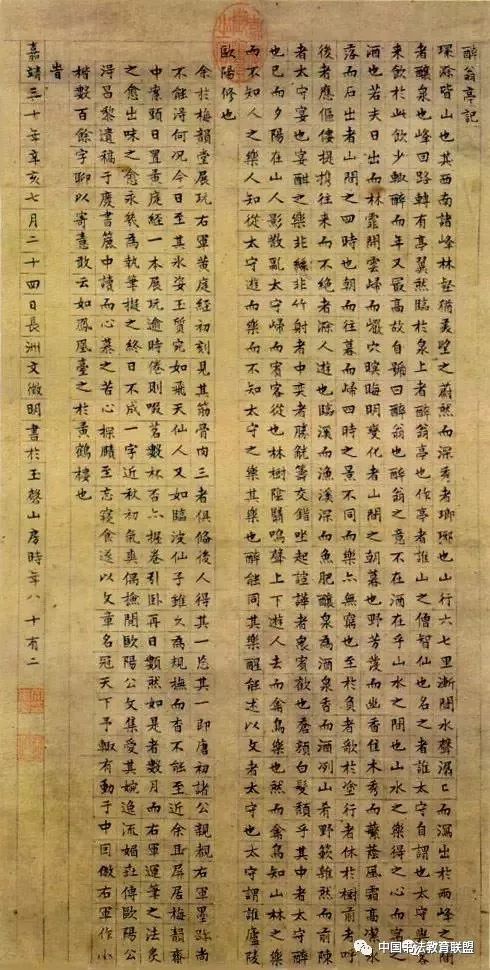 醉翁亭記
環滁皆山也其西南諸峰林壑猶美望之蔚然而深秀者瑯琊也山行六七里漸聞水聲潺〻而瀉出於兩峰之間
者釀泉也峰回路轉有亭翼然臨於泉上者醉翁亭也作亭者誰山之僧智仙也名之者誰太守自謂也太守與客
來飲於此飲少輒醉而年又最高故自號曰醉翁也醉翁之意不在酒在乎山水之間也山水之樂得之心而寓之
酒也若夫日出而林霏開雲歸而巖穴暝晦明變化者山間之朝暮也野芳發而幽香佳木秀而繁蔭風霜高潔水
落而石出者山間之四時也朝而往暮而歸四時之景不同而樂亦無窮也至於負者歌於塗行者休於樹前者呼
後者應傴僂提攜往來而不絕者滁人遊也臨溪而漁溪深而魚肥釀泉為酒泉香而酒冽山肴野蔌雜然而前陳
者太守宴也宴酣之樂非絲非竹射者中奕者勝觥籌交錯坐起諠譁者衆賓歡也蒼顏白髮頹乎其中者太守醉
也已而夕陽在山人影散亂太守歸而賓客從也林樹陰翳鳴聲上下遊人去而禽鳥樂也然而禽鳥知山林之樂
而不知人之樂人知從太守遊而樂而不知太守之樂其樂也醉能同其樂醒能述以文者太守也太守謂誰廬陵
歐陽修也
余於梅韻堂展玩右軍黃庭經初刻見其筋骨肉三者俱備後人得其一忘其一即唐初諸公親覩右軍墨跡尚
不能得何況今日至其冰姿玉質宛如飛天仙人又如臨波仙子雖久為規橅而杳不能至近余耳屏居梅韻齋
中案頭日置黃庭經一本展玩逾時倦則啜茗數杯否亦握卷引臥再日數然如是者數月而右軍運筆之法炙
之愈出味之愈永幾為執筆擬之終日不成一字近秋初氣爽偶撿閱歐陽公文集愛其婉逸流媚並傳歐陽公
得昌黎遺稿于廢書簏中讀而心慕之苦心探賾至忘寢食遂以文章名冠天下予輒有動于中因倣右軍作小
楷數百餘字聊以寄意敢云如鳳凰臺之於黃鶴樓也
旹
嘉靖三十年辛亥七月二十四日長洲文徵明書於玉磬山房時年八十有二
中国书法教育联盟